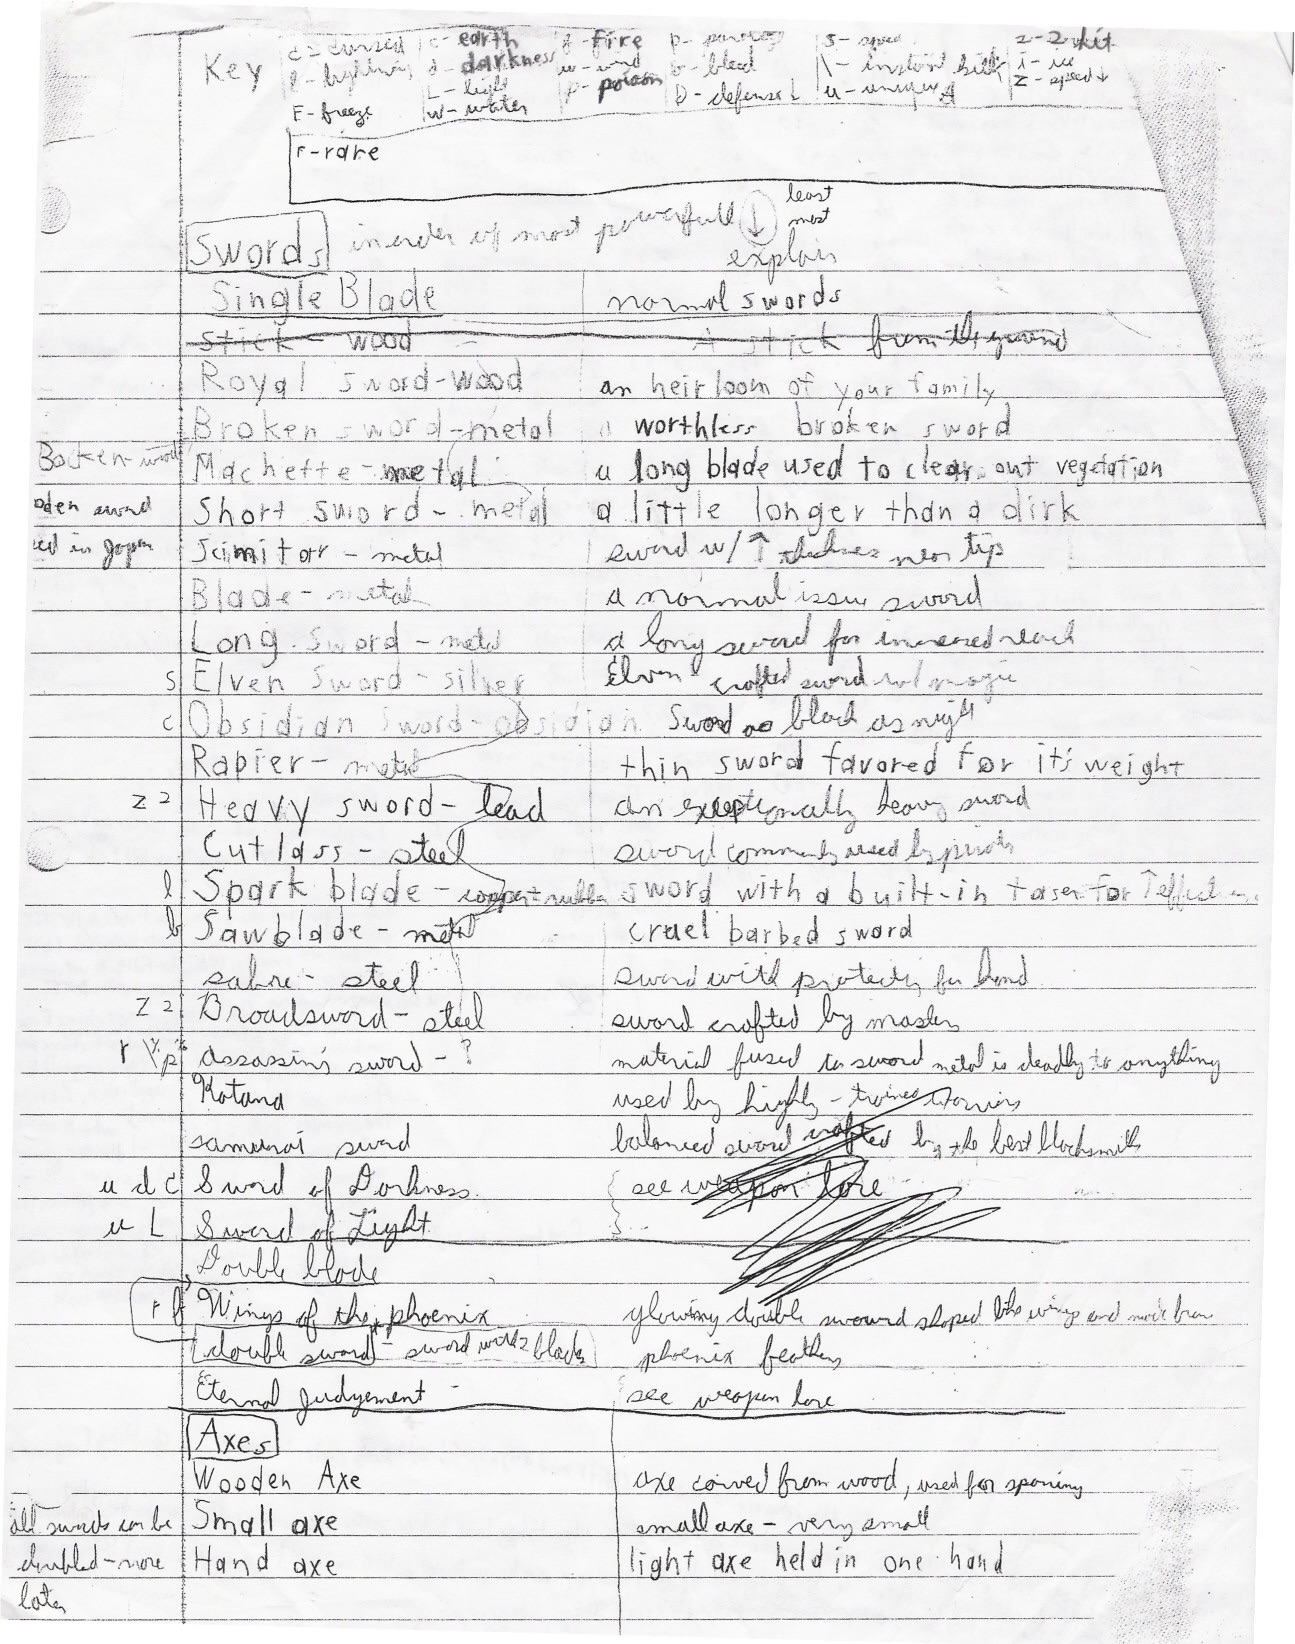 Key
c = cursed e - earth f - fire p - s - speed 2 - 2 hit
l - lightning d - darkness w - wind b - bleed \ - instant kill i - ice
L - light p - poison D - defense ↓ u - unique Z - speed ↓
F - freeze w - water
r - rare
Swords in order of most powerfull ↓ least most
explain
Single Blade normal swords
stick - wood A stick from the ground
Royal sword - wood an heirloom of your family
Broken sword - metal a worthless broken sword
Bocken - wood Machette - metal a long blade used to clear out vegetation
oden sword Short sword - metal a little longer than a dirk
ed in Japan Scimitar - metal sword w/ ↑ thickness near tip
Blade - metal a normal issue sword
Long sword - metal a long sword for increased reach
s Elven Sword - silver Elven crafted sword w/ magic
c Obsidian Sword - obsidian Sword as black as night
Rapier - metal thin sword favored for it's weight
Z 2 Heavy sword - lead an exceptionally heavy sword
Cutlass - steel sword commonly used by pirates
l Spark blade - copper + rubber sword with a built-in taser for ↑ effectiveness
b Sawblade - metal cruel barbed sword
sabre - steel sword with protection for hand
Z 2 Broadsword - steel sword crafted by masters
r \% p% assassin's sword - ? material fused to sword metal is deadly to anything
Katana used by highly-trained warriors
samurai sword balanced sword crafted by the best blacksmiths
u d c Sword of Darkness { see weapon lore
u L Sword of Light
Double blade
r f Wings of the phoenix glowing double sword shaped like wings and made from
double sword - sword with 2 blades phoenix feathers
Eternal judgement - see weapon lore
Axes
Wooden Axe axe carved from wood, used for sparring
all swords can be Small axe small axe - very small
doubled - more Hand axe light axe held in one hand
later